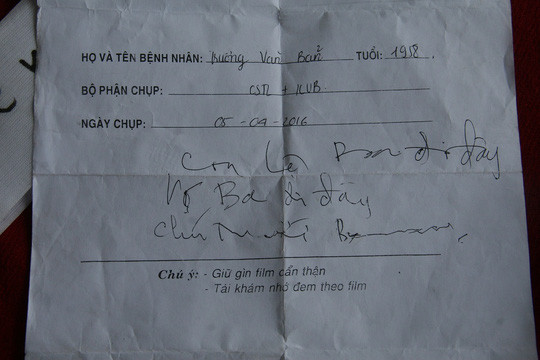 HỌ VÀ TÊN BỆNH NHÂN: Trương Văn Bản TUỔI: 1958.
BỘ PHẬN CHỤP: CSTL + KUB.
NGÀY CHỤP: 05-09-2016
Con đi đây
Vợ Ba đi đây
Chú ý: - Giữ gìn film cẩn thận
- Tái khám nhớ đem theo film